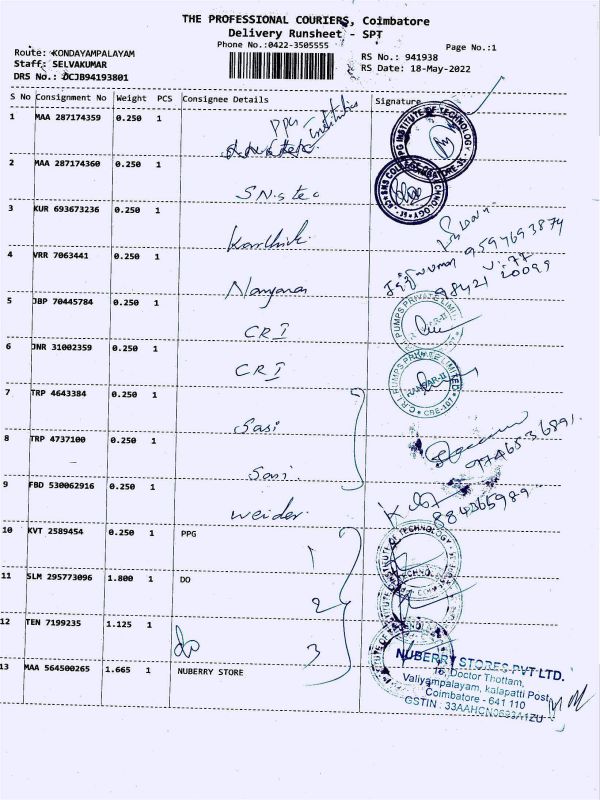 THE PROFESSIONAL COURIERS, Coimbatore
Delivery Runsheet - SPT
Phone No.:0422-3505555
Page No.:1
Route: KONDAYAMPALAYAM
Staff: SELVAKUMAR
DRS No.: DCJB94193801
RS No.: 941938
RS Date: 18-May-2022
S No Consignment No Weight PCS Consignee Details Signature
1 MAA 287174359 0.250 1 PPG - Institutes
2 MAA 287174360 0.250 1 SNS tec
3 KUR 693673236 0.250 1 Karthik
4 VRR 7063441 0.250 1
5 JBP 70445784 0.250 1 CRI
6 JNR 31002359 0.250 1 CRI
7 TRP 4643384 0.250 1 Sasi
8 TRP 4737100 0.250 1 Sasi
9 FBD 530062916 0.250 1 Weider
10 KVT 2589454 0.250 1 PPG 1
11 SLM 295773096 1.800 1 DO 2
12 TEN 7199235 1.125 1 do 3
13 MAA 564500265 1.665 1 NUBERRY STORE
PG INSTITUTE OF TECHNOLOGY
9594693874
98421 20099
C.R.I. PUMPS PRIVATE LIMITED
9746536891
NUBERRY STORES PVT LTD.
16, Doctor Thottam,
Valiyampalayam, kalapatti Post,
Coimbatore - 641 110